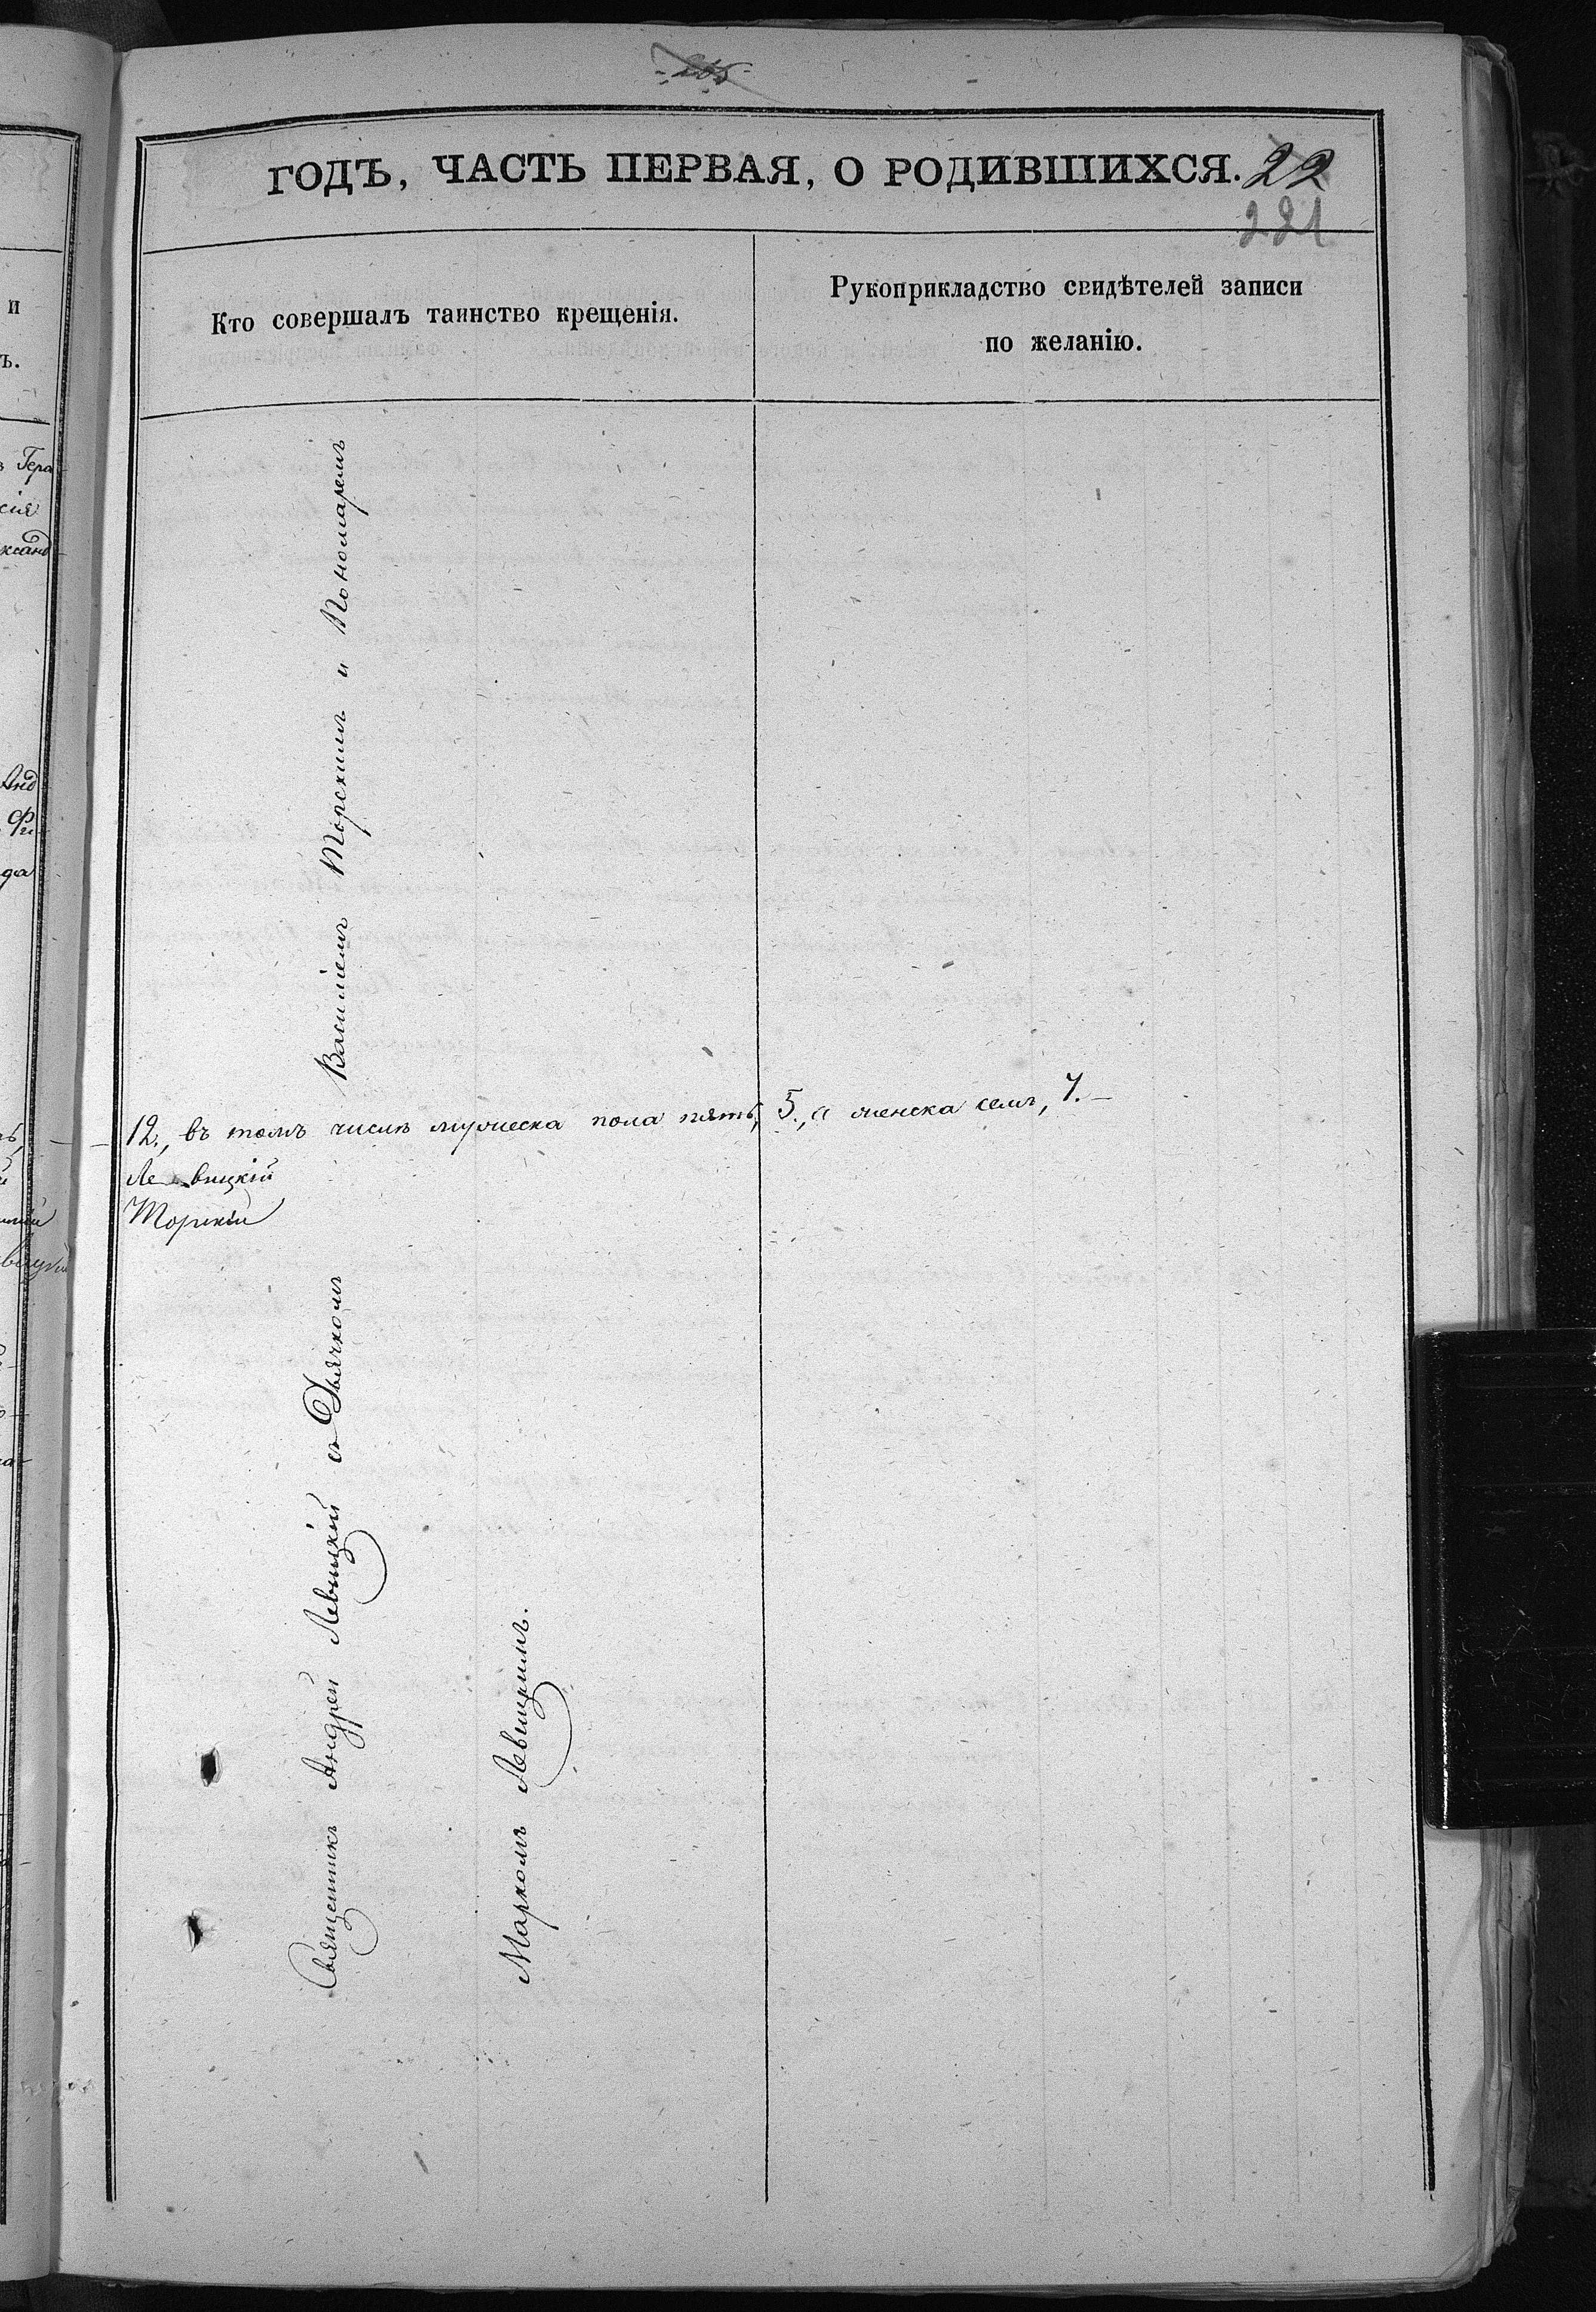 265
ГОДЪ, ЧАСТЬ ПЕРВАЯ, О РОДИВШИХСЯ. 22
221
Кто совершалъ таинство крещенія.
Рукоприкладство свидѣтелей записи
по желанію.
Василіемъ Торскимъ и Пономаремъ
12., въ томъ числѣ мужеска пола пять, 5., а женска семь, 7.
Левицкій
Торскій
Священникъ Андрей Левицкій съ Дьячкомъ
Маркомъ Левицкимъ.
и
ъ.
Гера
сія
ксанд
Анд
Фи
да